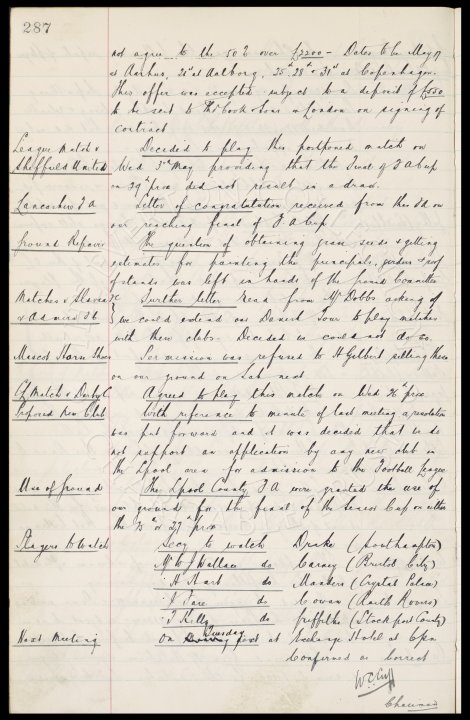 287
not agree to the 50% over £2200 - Dates to be May 19
at Aarhus, 21st at Aalborg, 25th, 28th & 31st at Copenhagen.
This offer was accepted subject to a deposit of £550
to be sent to Thos Cook & Son London on signing of
contract
League Match v Sheffield United Decided to play this postponed match on
Wed 3rd May providing that the Final of F A Cup
on 29th prox did not result in a draw.
Lancashire F A Letter of congratulation received from the F.A on
our reaching final of F A Cup
Ground Repairs The question of obtaining grass seeds & getting
estimates for painting the principals, girders & roof
of stands was left in hands of the ground Committee
Matches v Slavia & Admira Further letter read from Mr Dobbs asking if
we could extend our Danish Tour to play matches
with these clubs. Decided we could not do so.
Mascot Horse Shoes Permission was refused to H Gilbert selling these
on our ground on Sat next
Lge Match v Derby C. Agreed to play this match on Wed 26th prox
Proposed New Club With reference to minute of last meeting a resolution
was put forward and it was decided that we do
not support an application by any new club in
the Lpool area for admission to the Football League
Use of Ground The Lpool County F A were granted the use of
our ground for the final of the Senior Cup on either
the 25th or 27th prox
Players to Watch Secy to watch Drake (Southampton)
Mr W J Wallace do Carney (Bristol City)
" H Hart do Manders (Crystal Palace)
do Cowan (Raith Rovers)
do Griffiths (Stockport County)
Next Meeting On Tuesday next at Exchange Hotel at 6pm
Confirmed as Correct
W.C. Cuff
Chairman